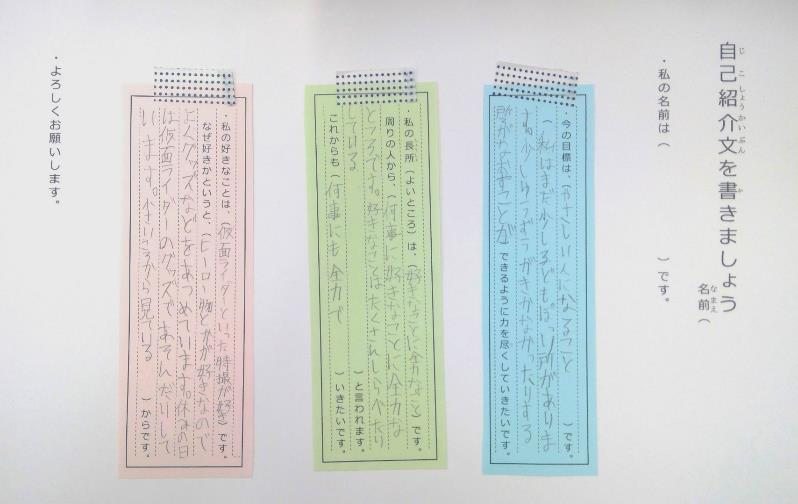 自己紹介文を書きましょう
じこしょうかいぶん
か
名前（
なまえ
・私の名前は（　　　）です。
・今の目標は、（やさしい人になること　）です。
（私はまだ少し子どもぽい所がありま
す。少しゆうずうがきかなかったりする
所がなおすことが）できるように力を尽くしていきたいです。
・私の長所（よいところ）は、（好きなことに全力なところ）です。
周りの人から、（何事に好きなことに全力な
ところです。好きなことはたくさんしらべたり
している　）と言われます。
これからも（何事にも全力で　）いきたいです。
・私の好きなことは、（仮面ライダーといった特撮が好き）です。
なぜ好きかというと、（ヒーロー物とかが好きなので
よくグッズなどをあつめています。休みの日
は仮面ライダーのグッズであそんだりして
います。小さいころから見ている　）からです。
・よろしくお願いします。